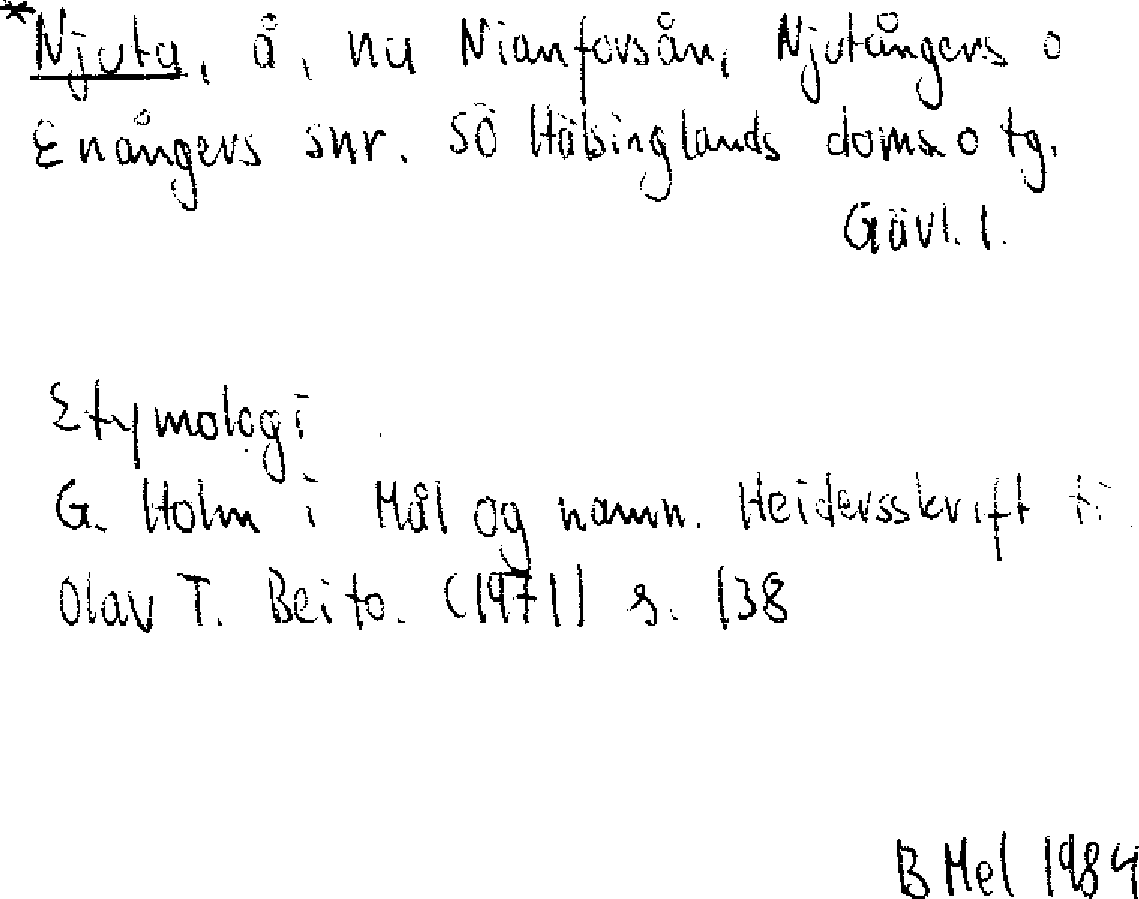 *Njuta, å, nu Nianforsån, Njutångers o
Enångers snr. SÖ Hälsinglands doms. o tg.
Gävl. l.
Etymologi
G. Holm i Mål og namn. Heidersskrift ti
Olav T. Beito. (1971) s. 138
B Mel 1984